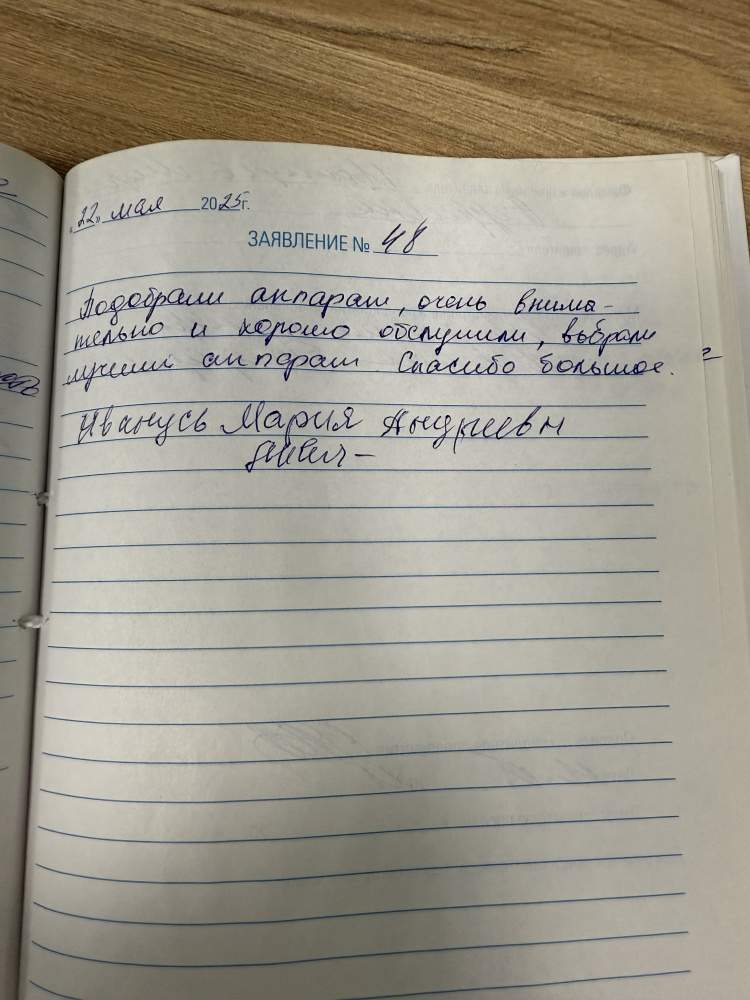 "22" мая 2025г.
ЗАЯВЛЕНИЕ № 48
Подобрали аппарат, очень внима-
тельно и хорошо обслужили, выбрали
лучший аппарат. Спасибо большое.
Иванусь Мария Андреевн